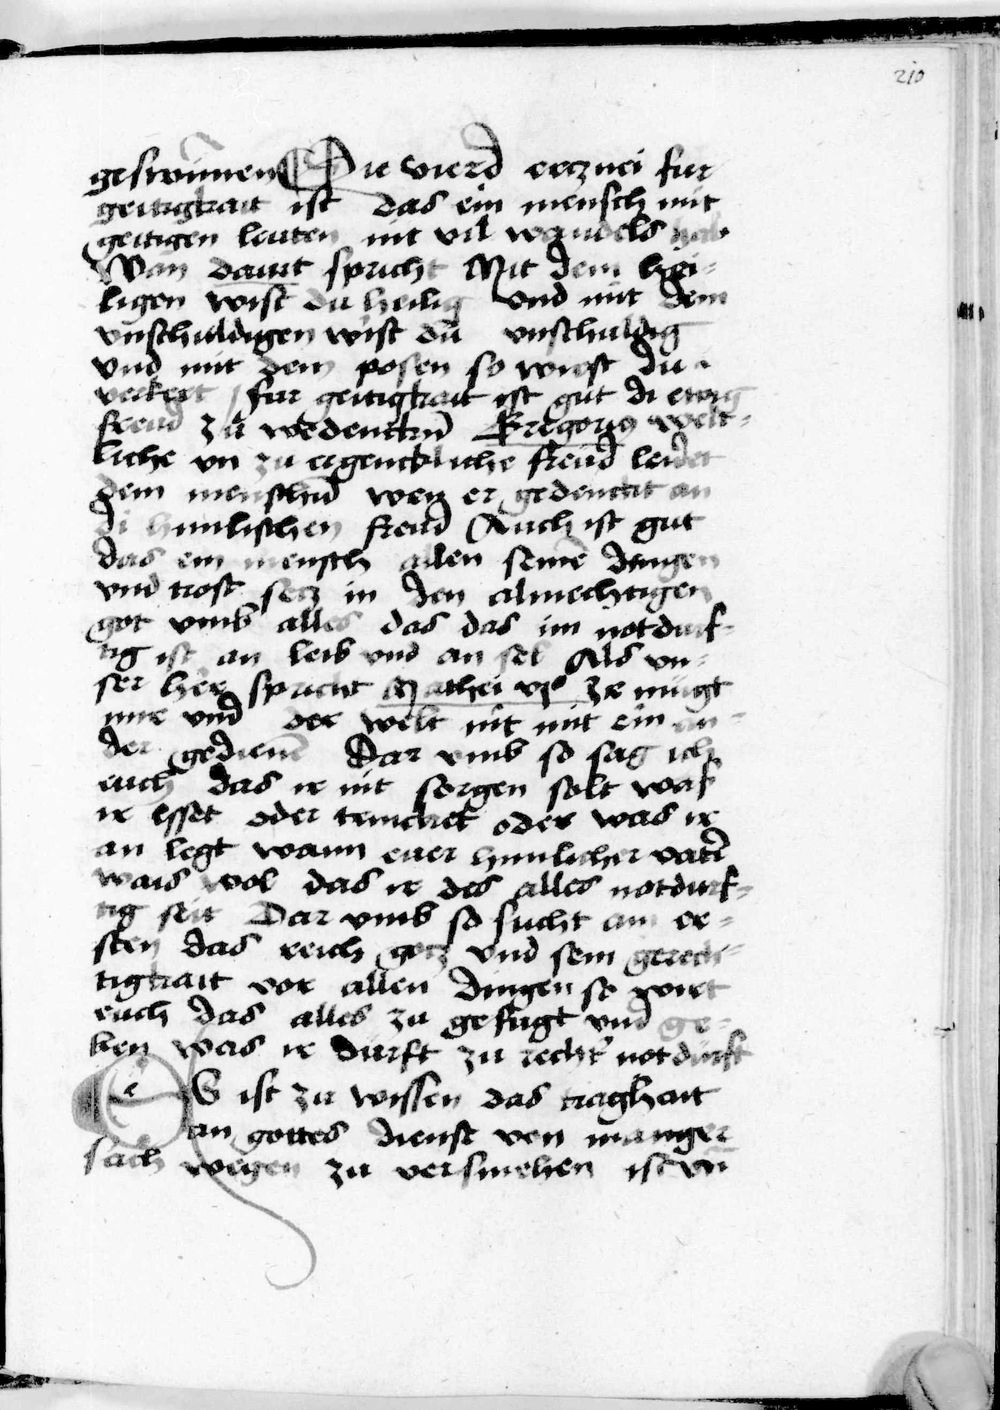 210
geswinnen Die vierd ercznei fur
geitigkait ist das ein mensch mit
geitigen leuten nit vil wandels hab
Wan dauit spricht Mit dem hei-
ligen wist du heilig Vnd mit dem
vnschuldigen wist du vnschuldig
vnd mit dem posen so wirst du
verkert fur geitigkait ist gut di ewig
freud zu wedencken Gregorius welt-
liche vn zu ergenckliche freud leidet
dem menschen wen er gedenckt an
di himlischen freud Auch ist gut
das ein mensch allen seine dingen
vnd trost secz in den almechtigen
got vmb alles das das im notdurf-
tig ist an leib vnd an sel Als vn-
ser her spricht Mathei vi° Ir mugt
mir vnd der welt nit mit ein an-
der gediene Dar vmb so sag ich
euch das ir nit sorgen solt was
ir esset oder trincket oder was ir
an legt wann euer himlicher vater
wais wol das ir des alles notdurf-
tig seit Dar vmb so sucht am er-
sten das reich gocz vnd sein gerech-
tigkait vor allen dingen so wirt
euch das alles zu gefugt vnd ge-
ben was ir durft zu recht notdurft
ES ist zu wissen das traghait
an gottes dienst von manger
sach wegen zu versmehen ist vn